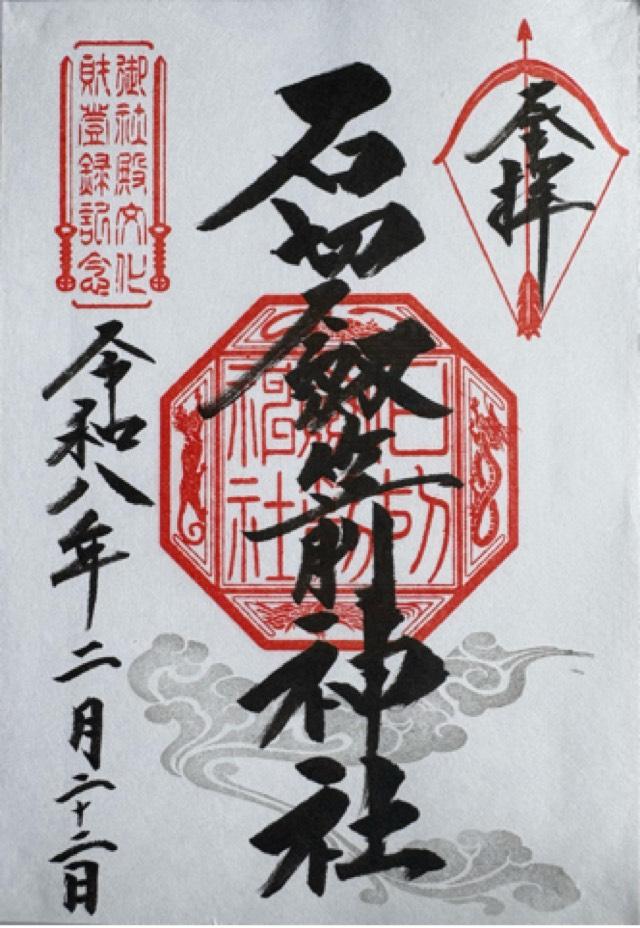 奉拝
石切劔箭神社
石切
劔箭
神社
御社殿文化
財登録記念
令和八年二月二十二日